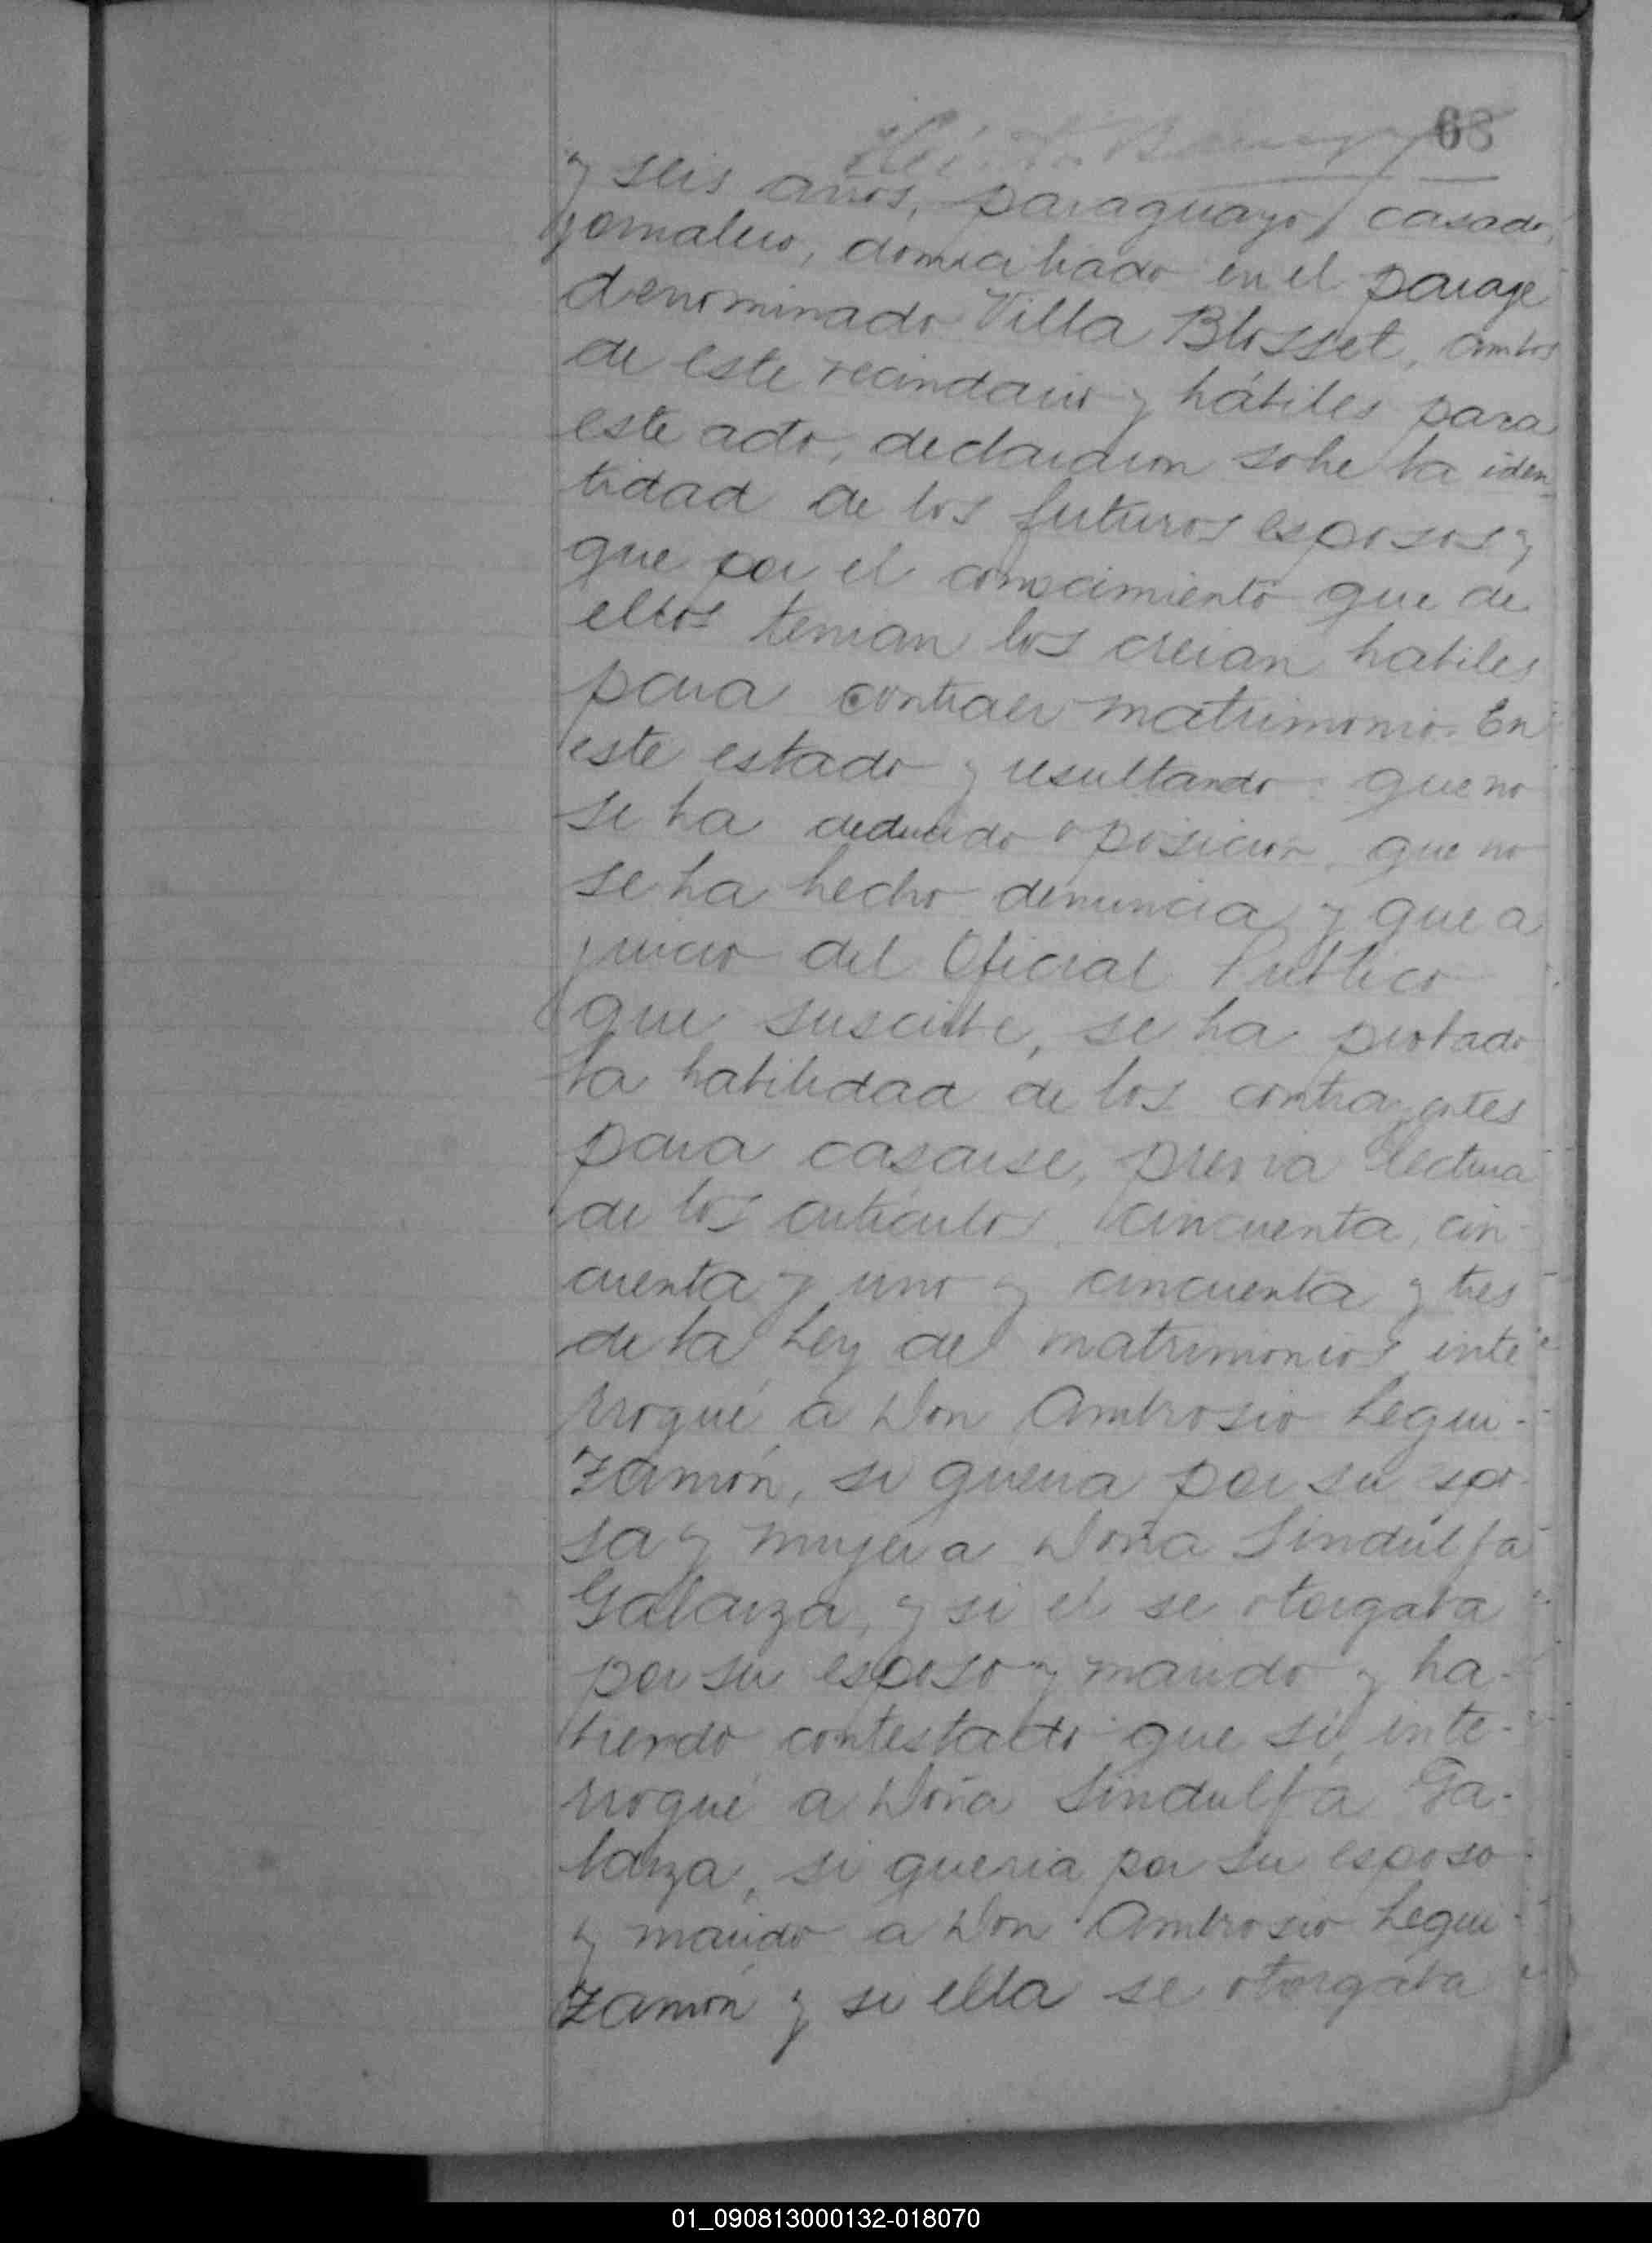 68
y seis años, paraguayo, casado,
jornalero, domiciliado en el paraje
denominado Villa Blosset, ambos
de este vecindario y hábiles para
este acto, declararon sobre la iden-
tidad de los futuros esposos y
que por el conocimiento que de
ellos tenian los creian habiles
para contraer matrimonio. En
este estado y resultando: que no
se ha deducido oposicion, que no
se ha hecho denuncia y que a
juicio del Oficial Publico
que suscribe, se ha probado
la habilidad de los contrayentes
para casarse, previa lectura
de los articulos cincuenta, cin-
cuenta y uno y cincuenta y tres
de la Ley de matrimonios inte
rrogué a Don Ambrosio Legui-
zamón, si queria por su espo-
sa y mujer a Doña Sindulfa
Galarza, y si el se otorgaba
por su esposo y marido y ha-
biendo contestado que si, inte-
rrogué a Doña Sindulfa Ga-
larza, si queria por su esposo
y marido a Don Ambrosio Legui-
zamón y si ella se otorgaba
01_090813000132-018070